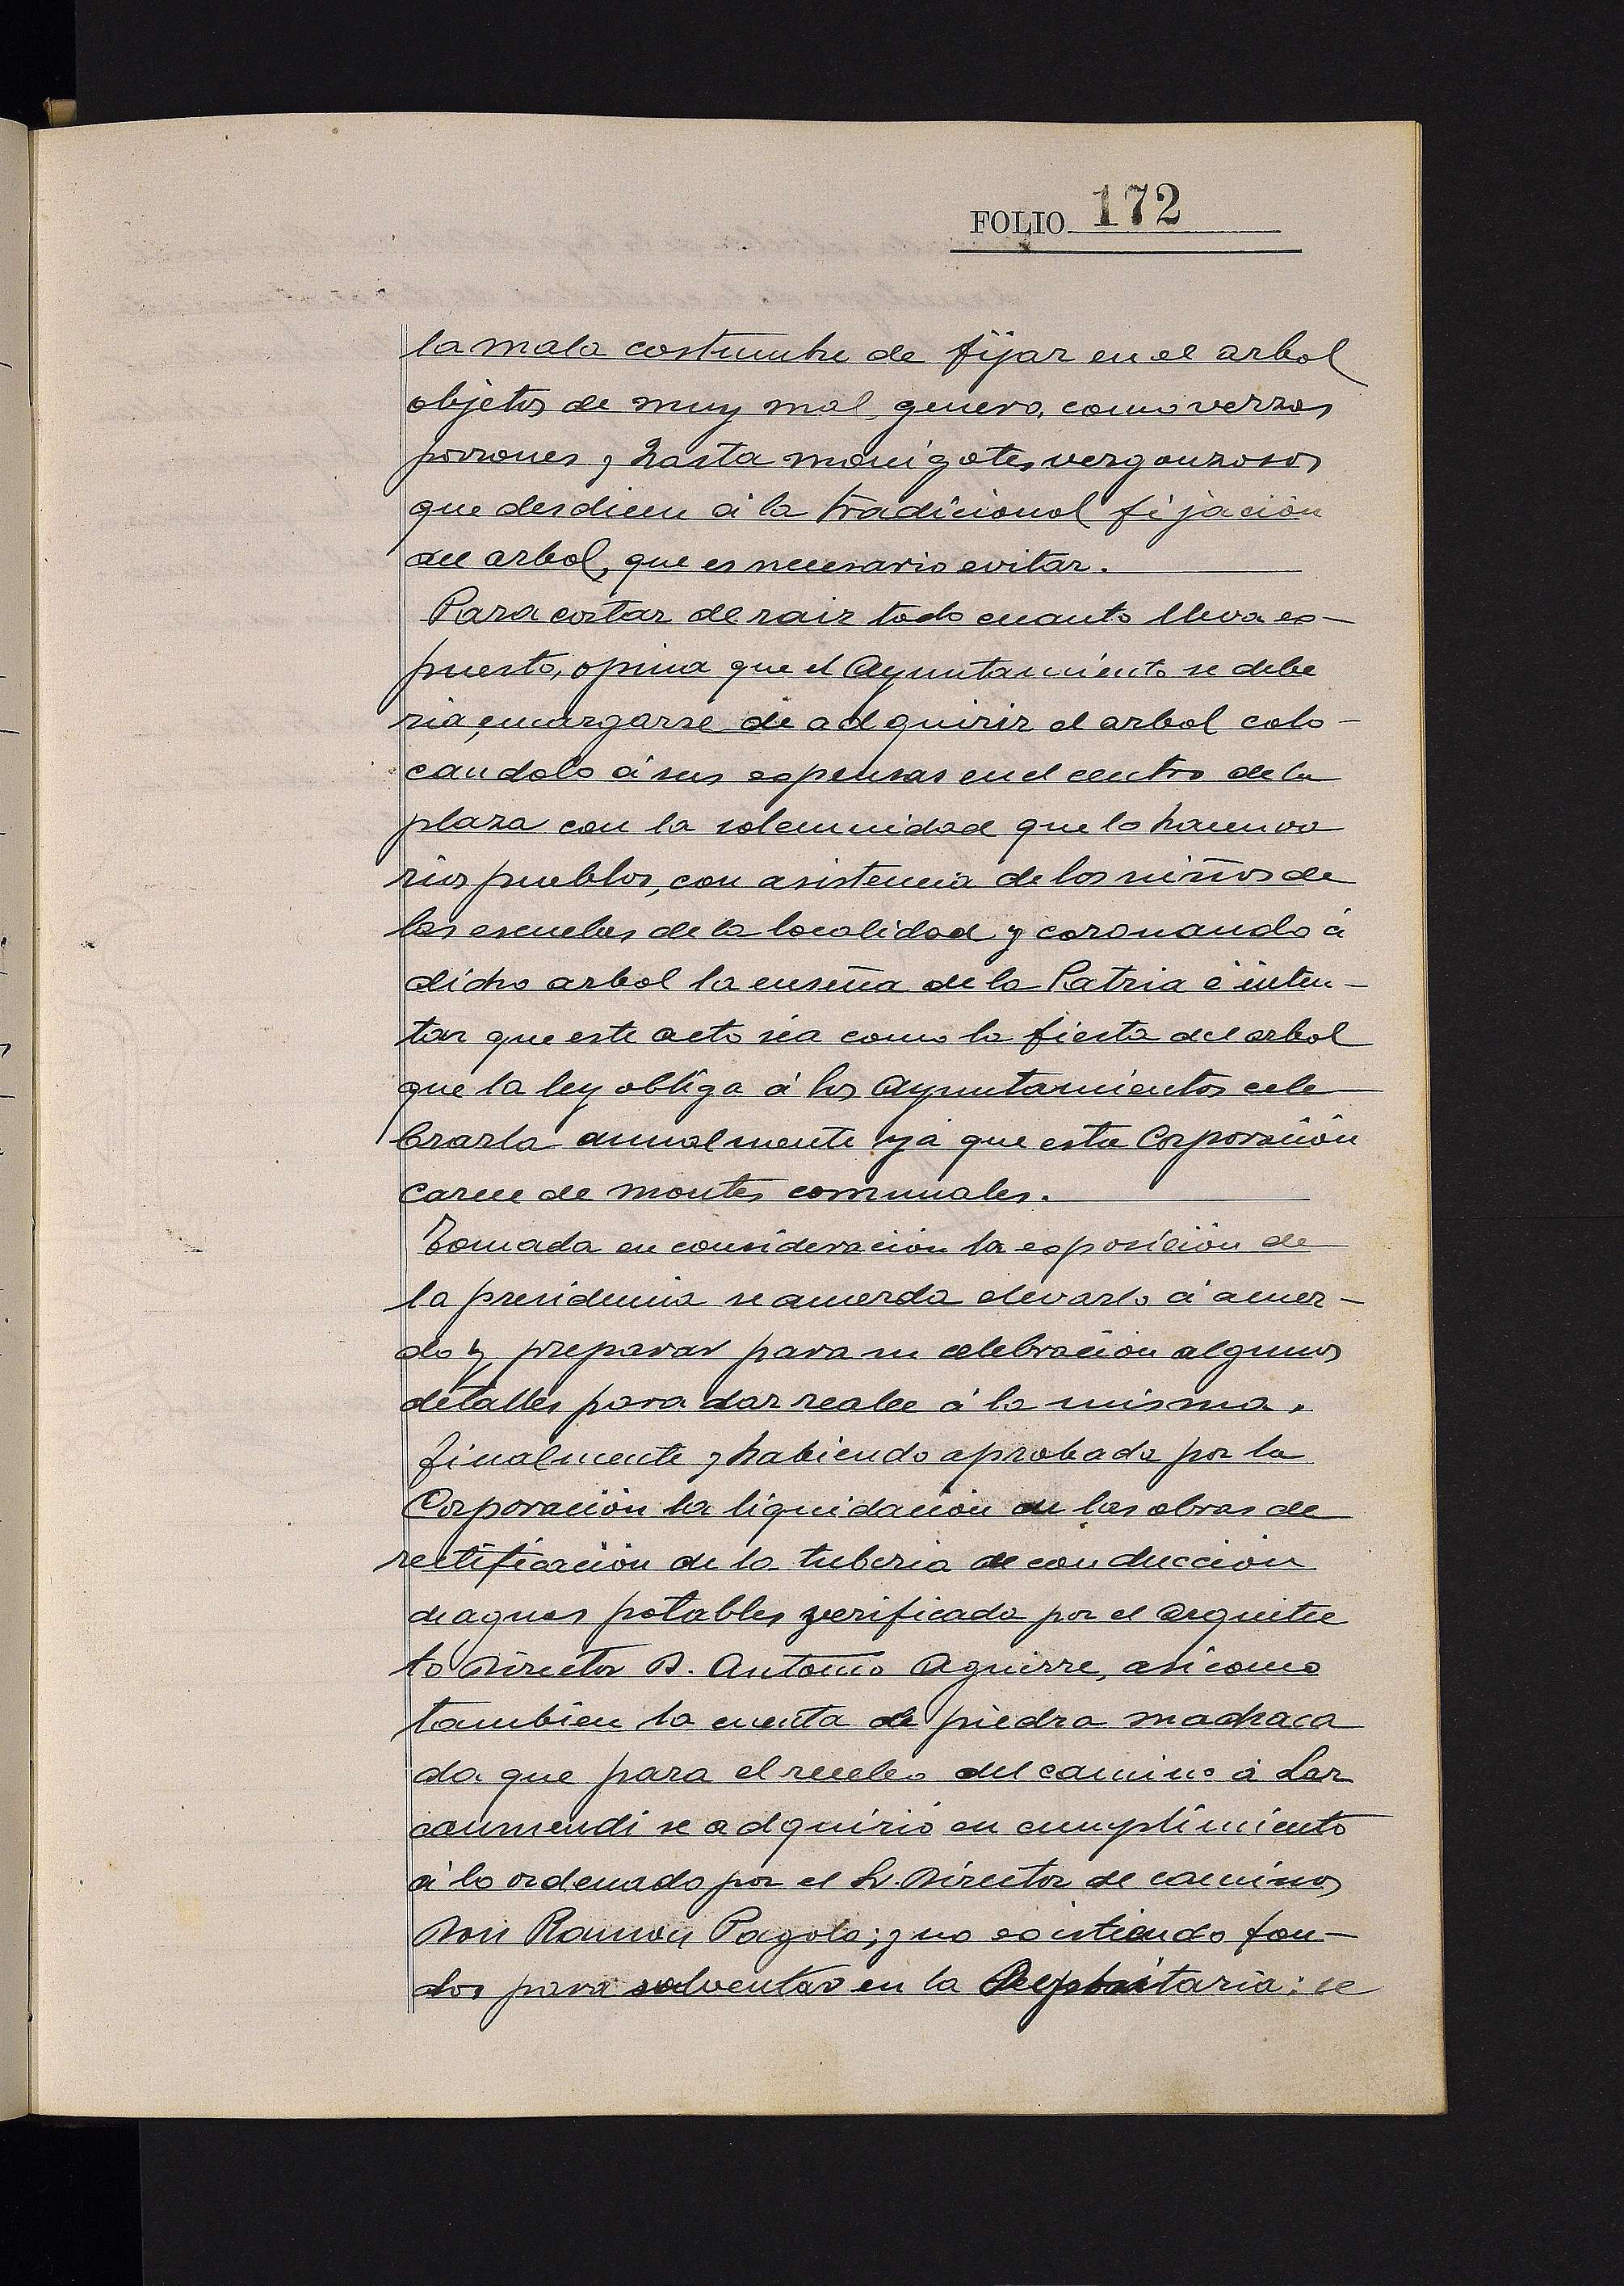 FOLIO 172
la mala costumbre de fijar en el arbol
objetos de muy mal genero, como verzas
porrones y hasta monigotes vergonzosos
que desdicen á la tradicional fijación
del arbol, que es necesario evitar.
Para cortar de raiz todo cuanto lleva es-
puesto, opina que el Ayuntamiento se debe
ria, encargarse de adquirir el arbol colo-
candolo á sus espensas en el centro de la
plaza con la solemnidad que lo hacen va
rios pueblos, con asistencia de los niños de
las escuelas de la localidad y coronando á
dicho arbol la enseña de la Patria é inten-
tar que este acto séa como la fiesta del arbol
que la ley obliga á los Ayuntamientos cele
brarla anualmente yá que esta Corporación
carece de montes comunales.
Tomada en consideración la esposición de
la presidencia se acuerda elevarlo á acuer-
do y preparar para su celebración algunos
detalles para dar realce á la misma.
Finalmente y habiendo aprobada por la
Corporación la liquidación de las obras de
rectificación de la tuberia de conducción
de aguas potables verificada por el Arquitec
to Director D. Antonio Aguirre, asi como
tambien la cuenta de piedra machaca
da que para el recebo del camino á Lar
caumendi se adquirió en cumplimiento
á lo ordenado por el Sr. Director de caminos
Don Ramon Pagola; y no esistiendo fon-
dos para solventar en la Depositaria: se